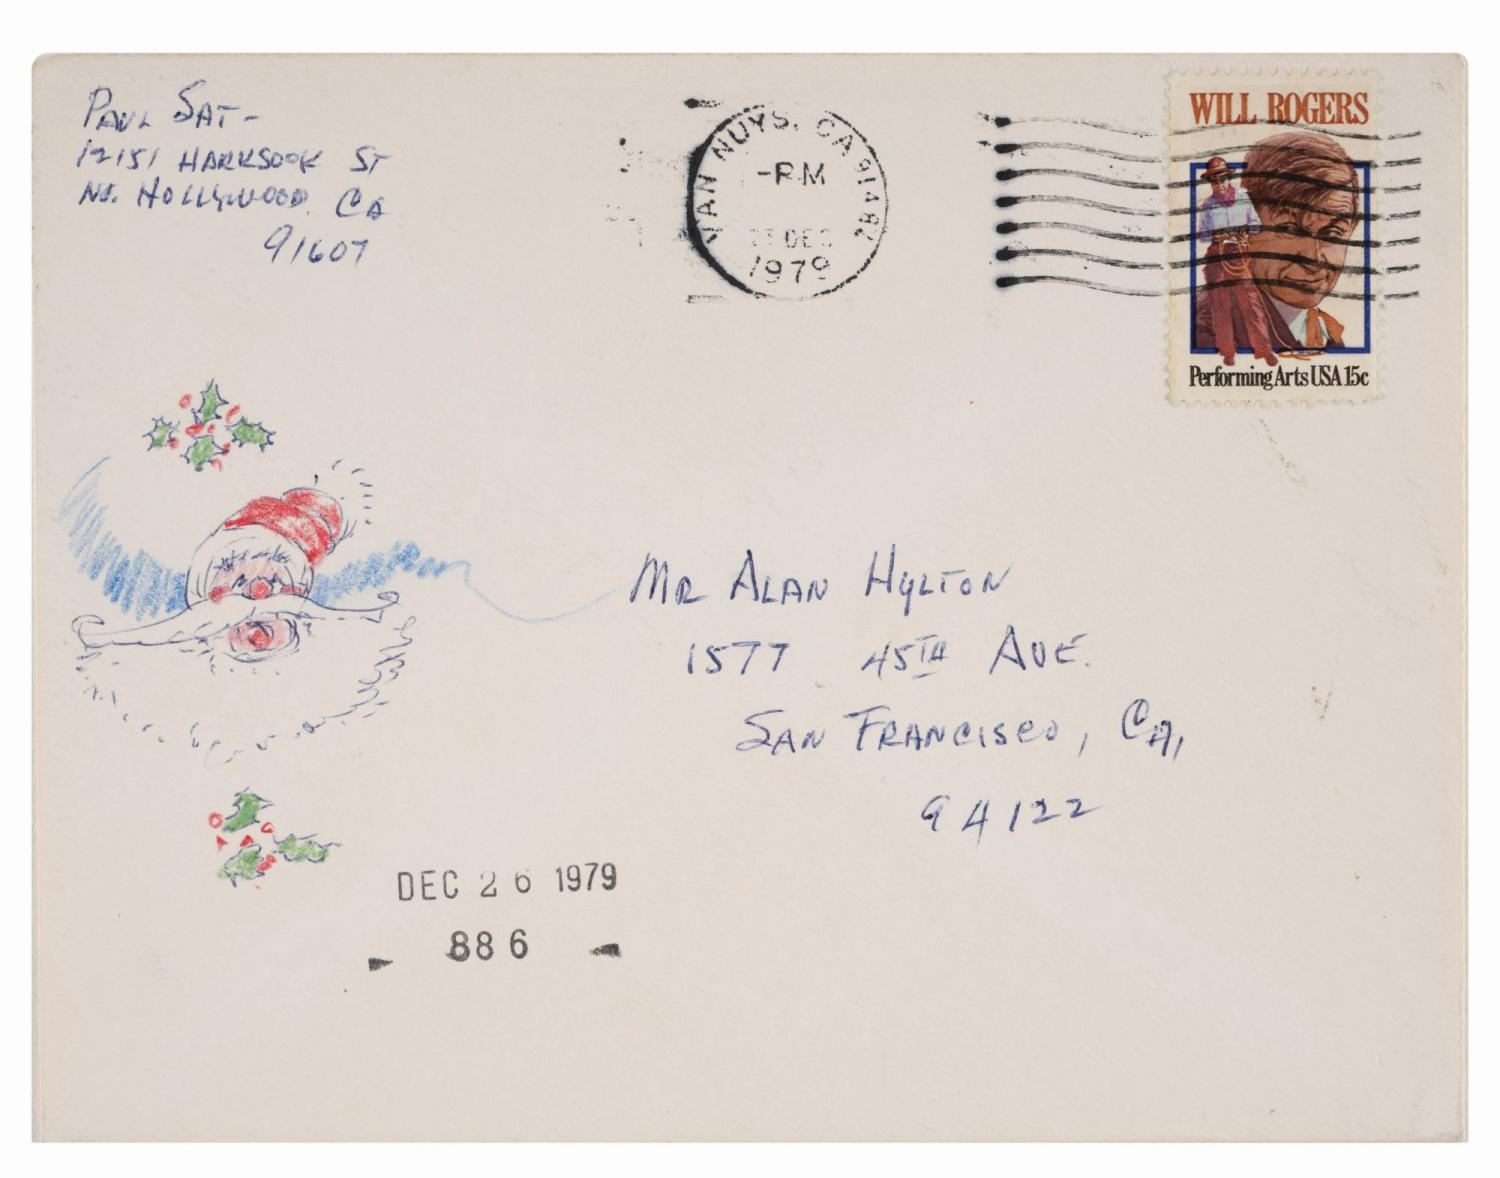 PAUL SAT-
12151 HARKSOOK ST
NO. HOLLYWOOD, CA
91607
VAN NUYS, CA 91482
-PM
23 DEC
1979
WILL ROGERS
Performing Arts USA 15c
MR ALAN HYLTON
1577 45TH AVE.
SAN FRANCISCO, CA,
94122
DEC 26 1979
886